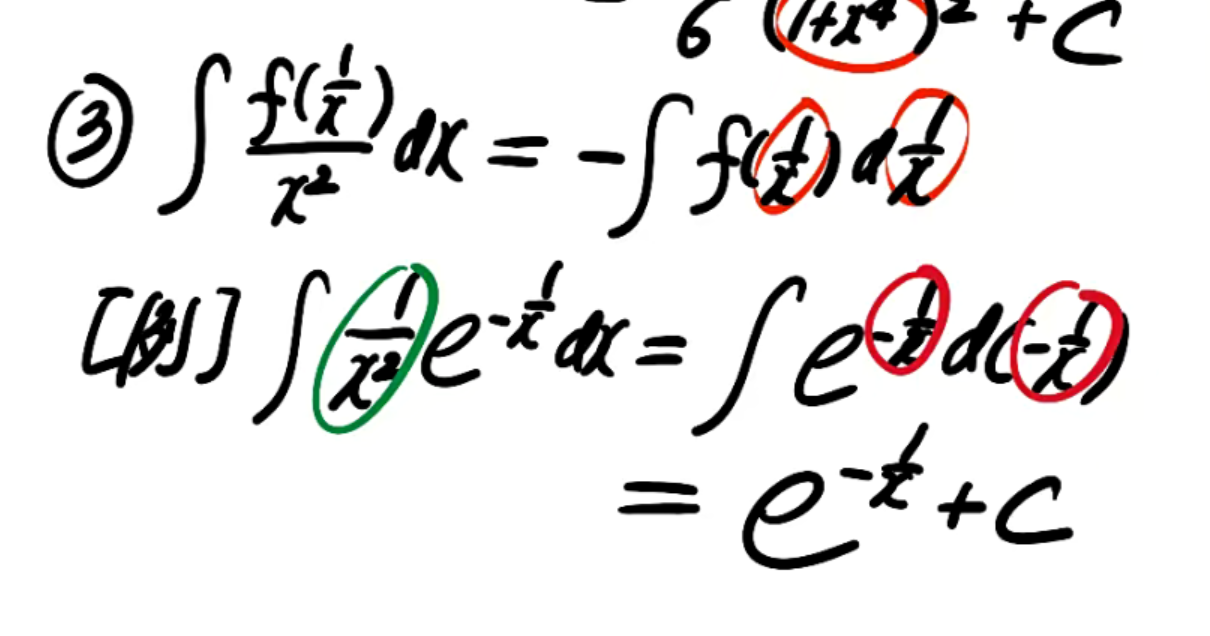 6 (1+x⁴)² + C
③ ∫ f(1/x)/x² dx = -∫ f(1/x) d 1/x
[例] ∫ 1/x² e^(-1/x) dx = ∫ e^(-1/x) d(-1/x)
= e^(-1/x) + C